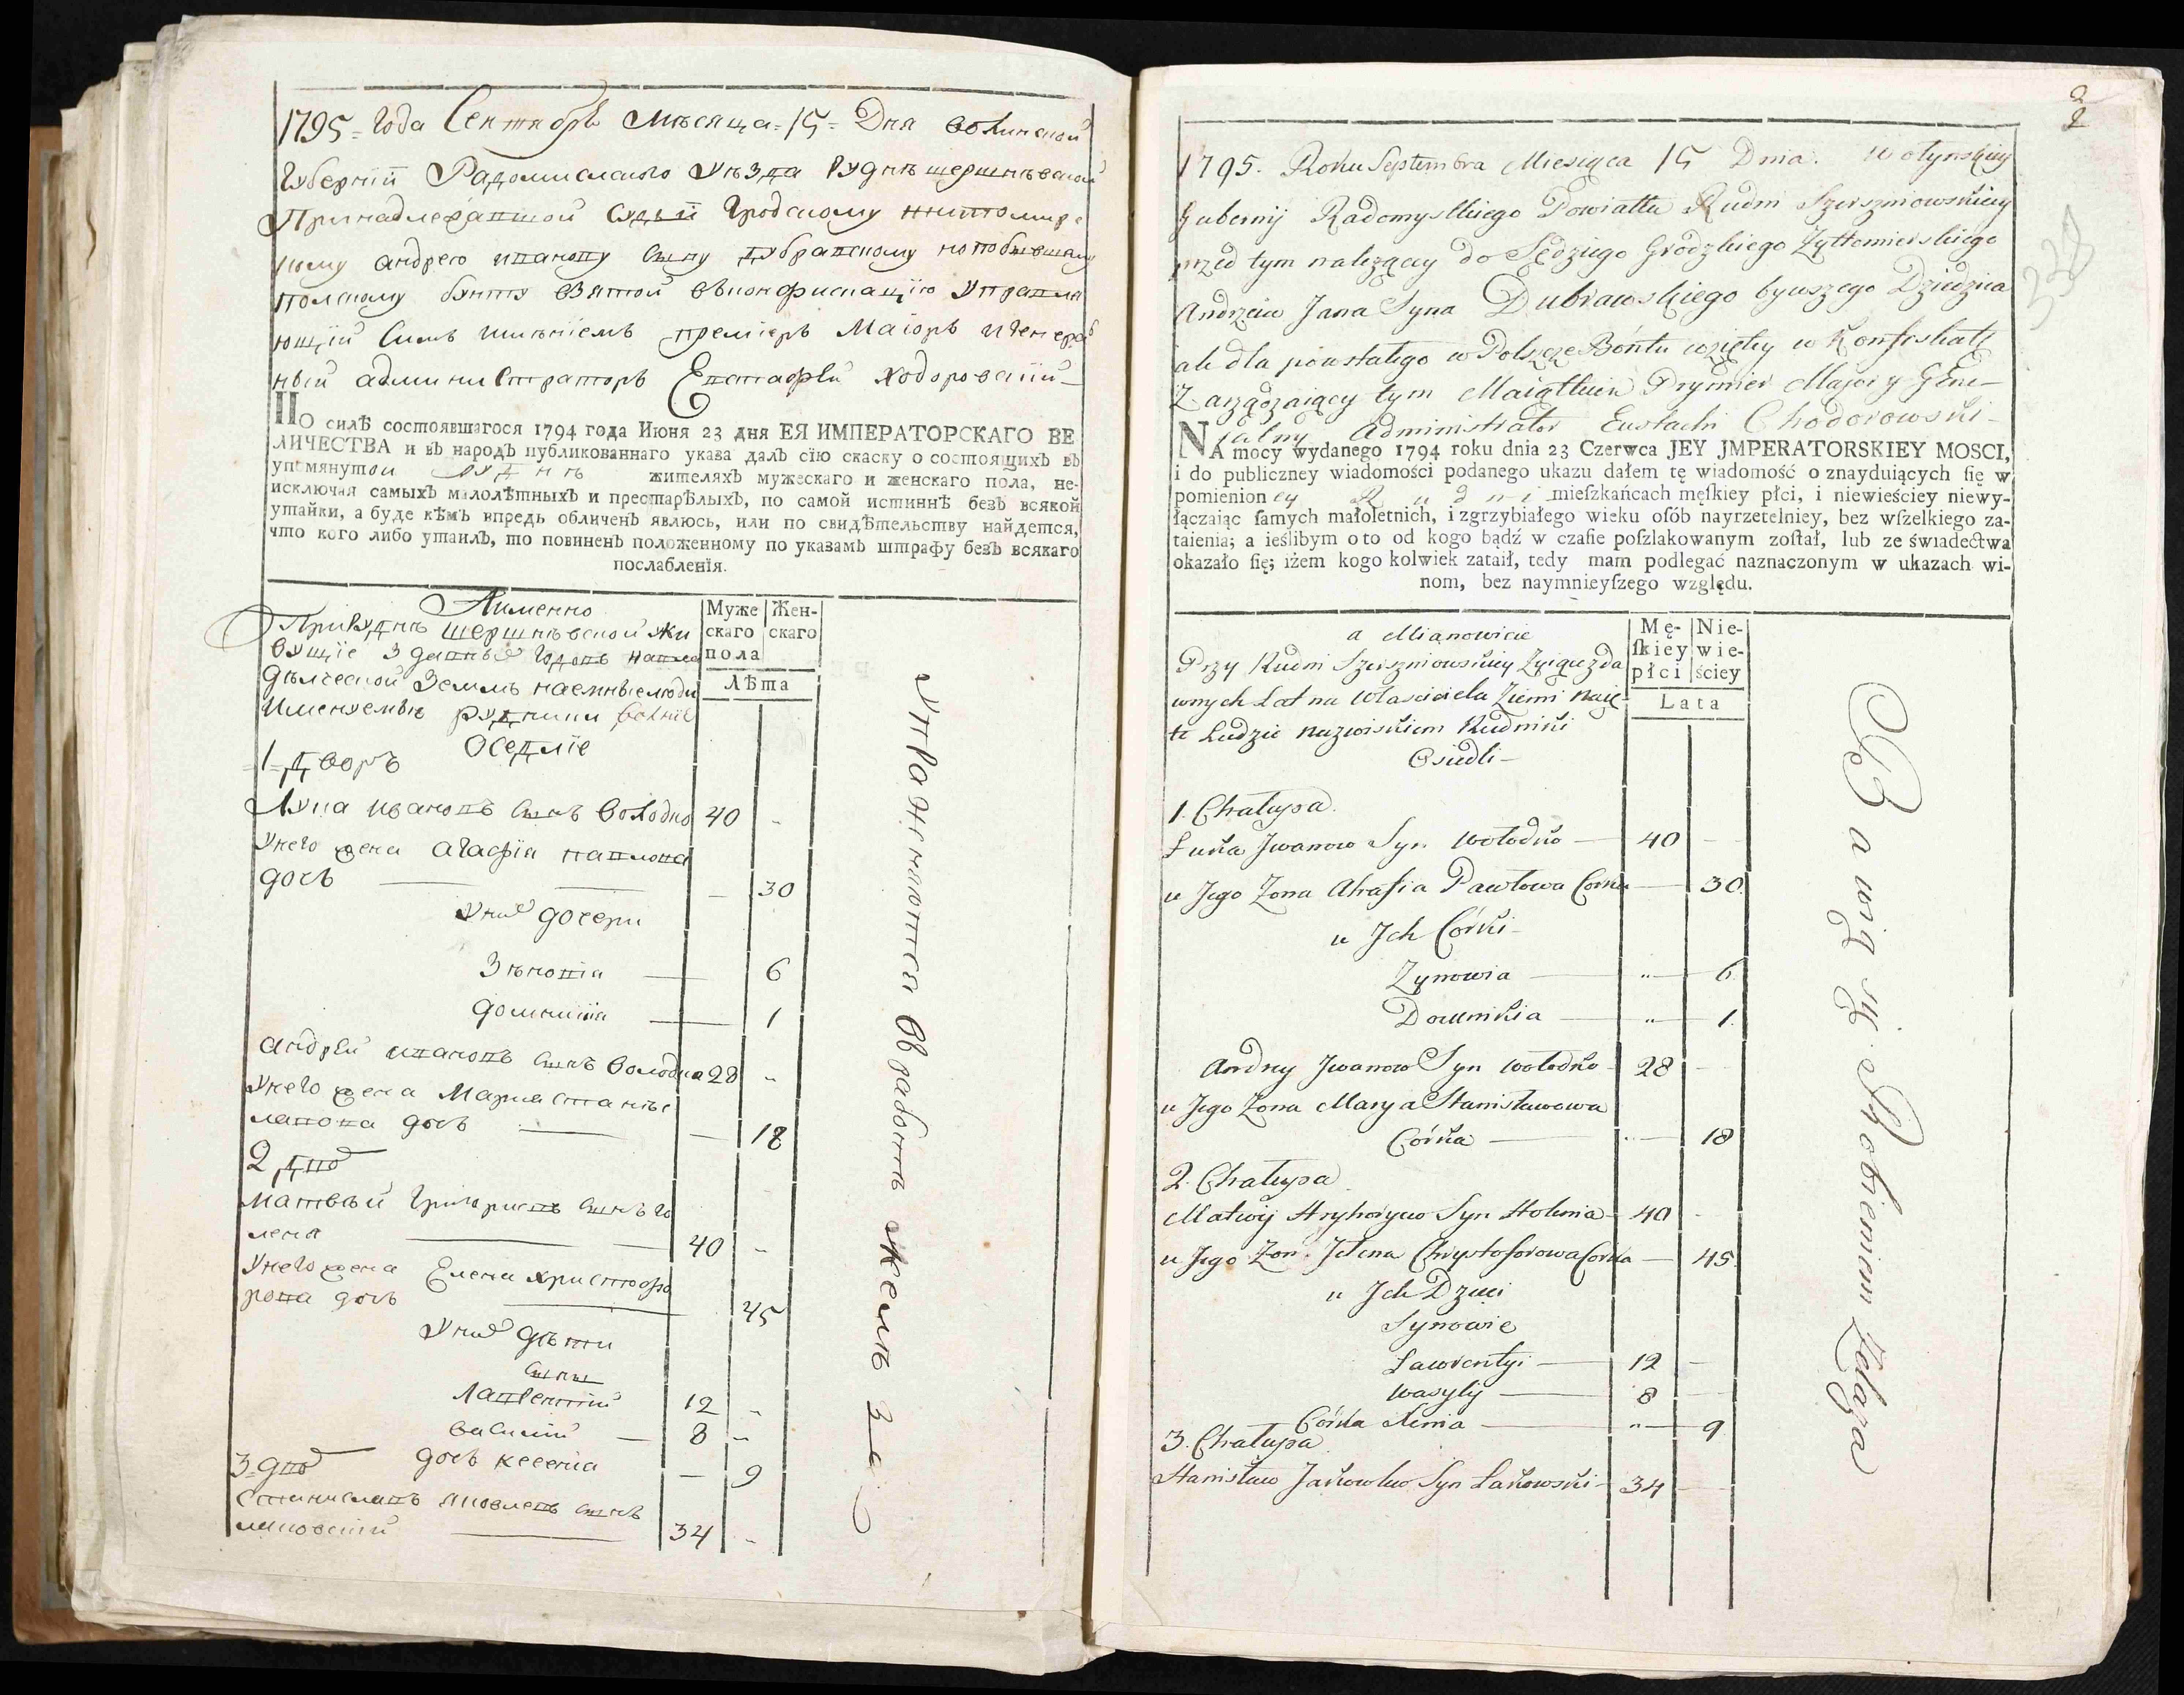 1795 = Года Сентябрѣ Мѣсяца = 15 = Дня Волинской
Губернїи Радомислского Уѣзда Руднѣ шершнѣвской
Принадлежапшой судьи Гродскому житомирс
кому андрею ивановꙋ сынꙋ дубравскому но по бывшему
полскому бунту взятой вконфискацїю управля
ющїй симъ имѣнїемъ премїеръ Маїоръ и генерал
ный администраторъ Евстафїй Ходоровскїй
ПО силѣ состоявшагося 1794 года Июня 23 дня ЕЯ ИМПЕРАТОРСКАГО ВЕ
ЛИЧЕСТВА и въ народъ публикованнаго указа далъ сїю скаску о состоящихъ въ
упомянутой руднѣ жителяхъ мужескаго и женскаго пола, не-
исключая самыхъ малолѣтныхъ и престарѣлыхъ, по самой истиннѣ безъ всякой
утайки, а буде кѣмъ впредь обличенъ явлюсь, или по свидѣтельству найдется,
что кого либо утаилъ, то повиненъ положенному по указамъ штрафу безъ всякаго
послабленїя.
Аименно
При Руднѣ шершнѣвской жи
вущїе з давныхъ годовъ на вла
дѣлческой Землѣ наемные люди
Именуемые рудники
Оседлїе
Муже
скаго
пола
Жен-
скаго
Лѣта
1 дворъ
Лука ивановъ сынъ Володко 40 -
У него жена агафїя павлова
дочь — 30
У них дочери
Зѣновїя — 6
домникїя — 1
андрей ивановъ сынъ Володко 28 -
У него жена Мария станис
лавова дочь — 18
2 дво
матвѣй григориевъ сынъ го
леня 40 -
У него жена Елена христофо
рова дочь 45
У них дѣти
сыны
Лаврентїй 12 -
василїй — 8 -
дочь ксенїя — 9
3 дво
станиславъ яковлевъ сынъ
лаковскїй 34 -
Упражняются в работѣ желѣза
2
338
1795. Roku Septembra Miesiąca 15 Dnia. Wołyńskiey
Gubernij Radomyslkiego Powiattu Rudni Szerszniowskiey
przed tym nalezącey do Sędziego Grodzkiego Zyttomierskiego
Andrzeia Jana Syna Dubrawskiego bywszego Dziedzica
ale dla powstałego w Polszcze Bóntu wziętey w Konfiskatę
Zarządzaiący tym Maiątkiem Prymier Major y Gene-
ralny Administrator Eustachi Chodorowski
NA mocy wydanego 1794 roku dnia 23 Czerwca JEY JMPERATORSKIEY MOSCI,
i do publiczney wiadomości podanego ukazu dałem tę wiadomość o znayduiących ſię w
pomienioney Rudni mieſzkańcach męſkiey płci, i niewieściey niewy-
łączaiąc ſamych małoletnich, i zgrzybiałego wieku oſób nayrzetelniey, bez wſzelkiego za-
taienia; a ieślibym o to od kogo bądź w czaſie poſzlakowanym zoſtał, lub ze świadectwa
okazało ſię; iżem kogo kolwiek zataił, tedy mam podlegać naznaczonym w ukazach wi-
nom, bez naymnieyſzego względu.
a Mianowicie
Przy Rudni Szerszniowskiey Zyiące z da
wnych Lat na Własciciela Ziemi Naię-
te Ludzie nazwiskiem Rudniki
Osiedli -
Mę-
ſkiey
płci
Nie-
wie-
ściey
Lata
1. Chałupa
Łuka Jwanow Syn Wołodko — 40 -
u Jego Zona Ahafia Pawłowa Corka — 30.
u Jch Córki -
Zynowia — „ — 6.
Domnikia — „ — 1.
Andrey Jwanow Syn Wołodko 28 -
u Jego Zona Marya Stanisławowa
Córka — 18
2. Chałupa
Matwiy Hryhoryew Syn Holenia 40 -
u Jego Zona Jelena Chrystoforowa Corka — 45.
u Jch Dzieci
Synowie
Ławrentyi — 12 -
Wasylij — 8 -
Córka Xenia — „ — 9
3. Chałupa
Stanisław Jakowlew Syn Łakowski 34 -
Bawią się Robieniem Zelaza